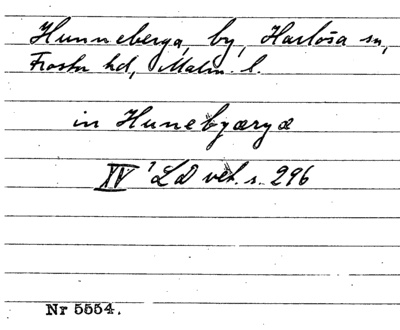 Hunneberga, by, Harlösa sn,
Frosta hd, Malm. l.
in Hunebgærgæ
XV¹ LD vet. s. 296
Nr 5554.